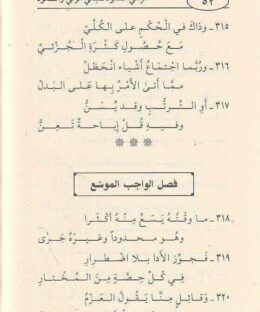 ٥٢
٣١٥- وذاكَ في الْحُكمِ على الكُلِّيْ
مَعَ حُصُولِ كَثْرَةِ الْجُزْئيْ
٣١٦- ورُبَّما اجتماعُ أشياءَ انْحَظَلْ
ممَّا أتىٰ الأمْرُ بِها على البَدَلْ
٣١٧- أوِ التَّرَتُّبِ وقد يُسَنُّ
وفيهِ قُلْ إباحةٌ تَعِنُّ
***
فصل الواجب الموسَّع
٣١٨- ما وقتُهُ يَسَعُ مِنْهُ أكثَرا
وهْوَ محدوداً وغيرَهُ جَرَىٰ
٣١٩- فَجوَّزَ الأدا بلا اضْطِرارِ
في كُلِّ حِصَّةٍ مِنَ الْمُخْتارِ
٣٢٠- وَقائِلٌ مِنَّا يَقُولُ العَزْمُ